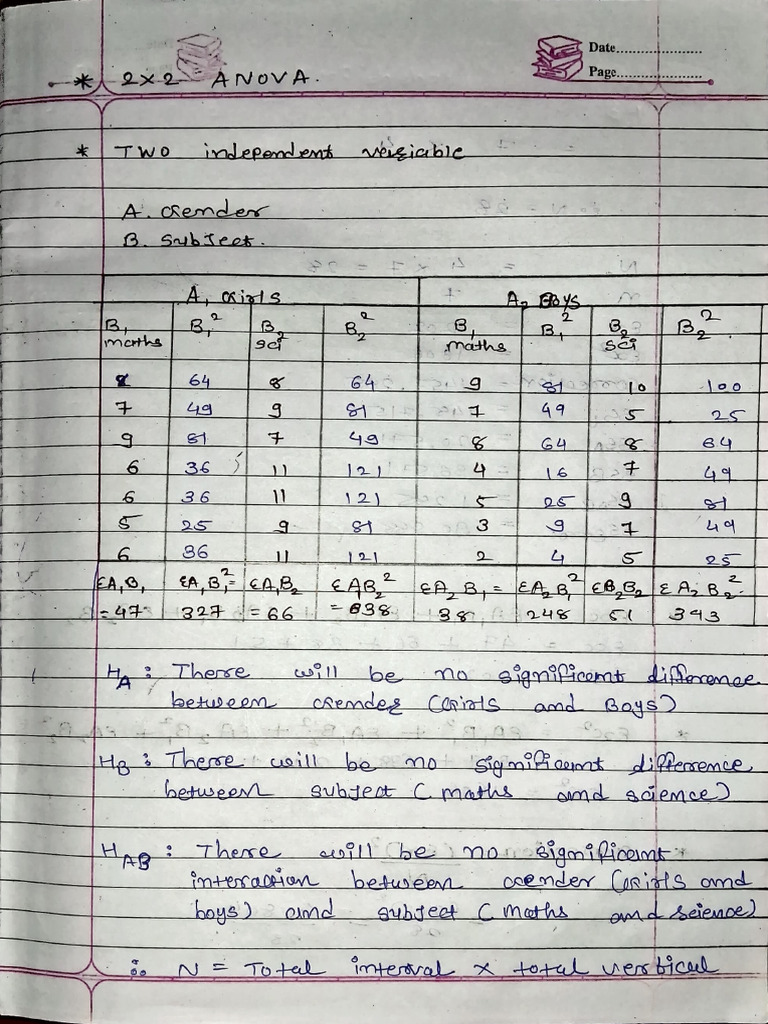 Date
Page
* 2×2 ANOVA.
* TWO independent veriable
A. Gender
B. Subject.
A, Girls A₂ Boys
B, maths B₁² B₂ sci B₂² B, maths B₁² B₂ sci B₂²
8 64 8 64 9 81 10 100
7 49 9 81 7 49 5 25
9 81 7 49 8 64 8 64
6 36 11 121 4 16 7 49
6 36 11 121 5 25 9 81
5 25 9 81 3 9 7 49
6 36 11 121 2 4 5 25
ƐA,B, ƐA,B,²= ƐA,B₂ ƐAB₂² ƐA₂B₁= ƐA₂B₁² ƐB₂B₂ ƐA₂B₂²
=47 327 =66 =638 38 248 51 393
H_A : There will be no significant difference
between Gender (Girls and Boys)
H_B : There will be no significant difference
between subject (maths and science)
H_AB : There will be no significant
interaction between Gender (Girls and
boys) and subject (maths and science)
∴ N = Total interval × total vertical